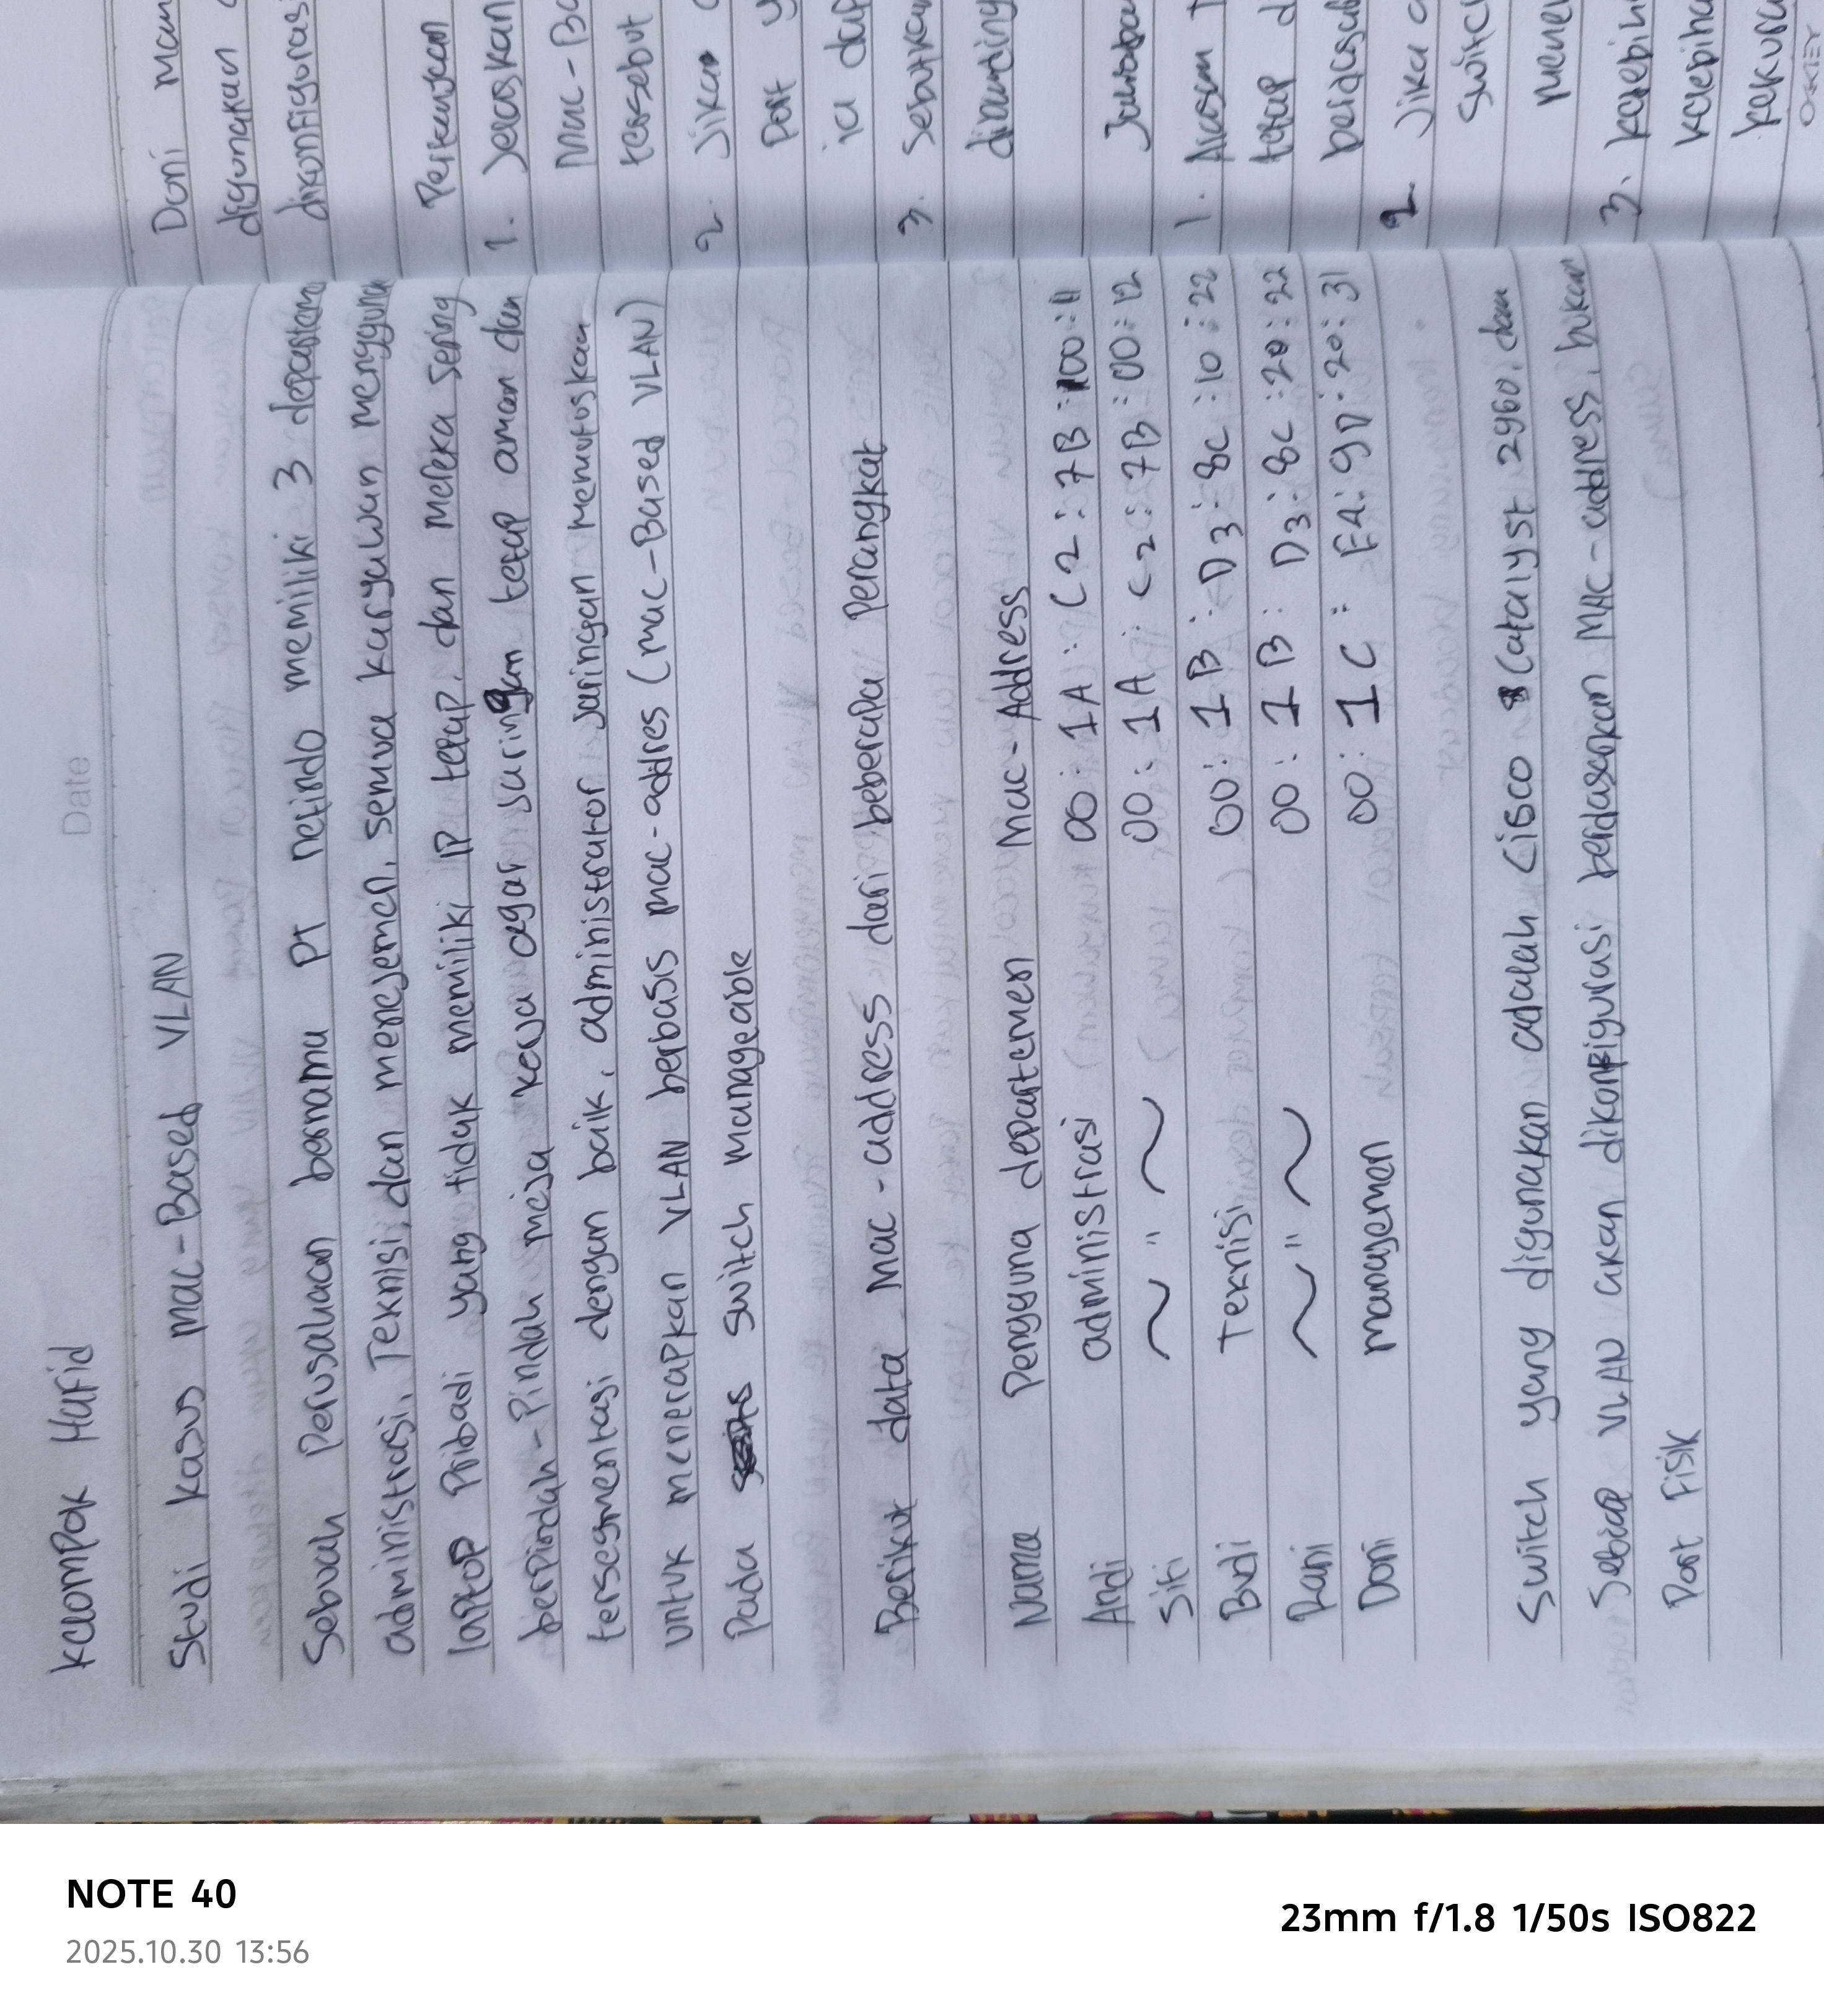 Date
kelompok Hafid
Studi kasus mac-Based VLAN
Sebuah Perusahaan bernama PT netindo memiliki 3 departem
administrasi, Teknisi, dan menejemen. semua karyawan mengguna
laptop Pribadi yang tidak memiliki IP tetap. dan mereka sering
berpindah-Pindah meja kerja agar jaringan tetap aman dan
tersegmentasi dengan baik, administrator jaringan memutuskan
untuk menerapkan VLAN berbasis mac-addres (mac-Based VLAN)
Pada switch manageable
Berikut data Mac-address dari beberapa Perangkat
Nama Pengguna departemen Mac-Address
Andi administrasi 00:1A:C2:7B:00:11
Siti ~ " ~ 00:1A:C2:7B:00:12
Budi Teknisi 00:1B:D3:8C:10:22
Rani ~ " ~ 00:1B:D3:8C:20:22
Doni manajemen 00:1C:E4:9D:20:31
Switch yang digunakan adalah Cisco Catalyst 2960, dan
Setiap VLAN akan dikonfigurasi berdasarkan MAC-address, bukan
Port Fisik
Doni
digunakan
dikonfigurasi
Pertanyaan
1. Jelaskan
Mac-Ba
tersebut
2. Jika
Port y
ia dap
3. Sebutkan
dibanding
Jawaban
1. Alasan
tetap d
berdasar
2 Jika
Switc
mene
3. kelebih
kelebiha
kekura